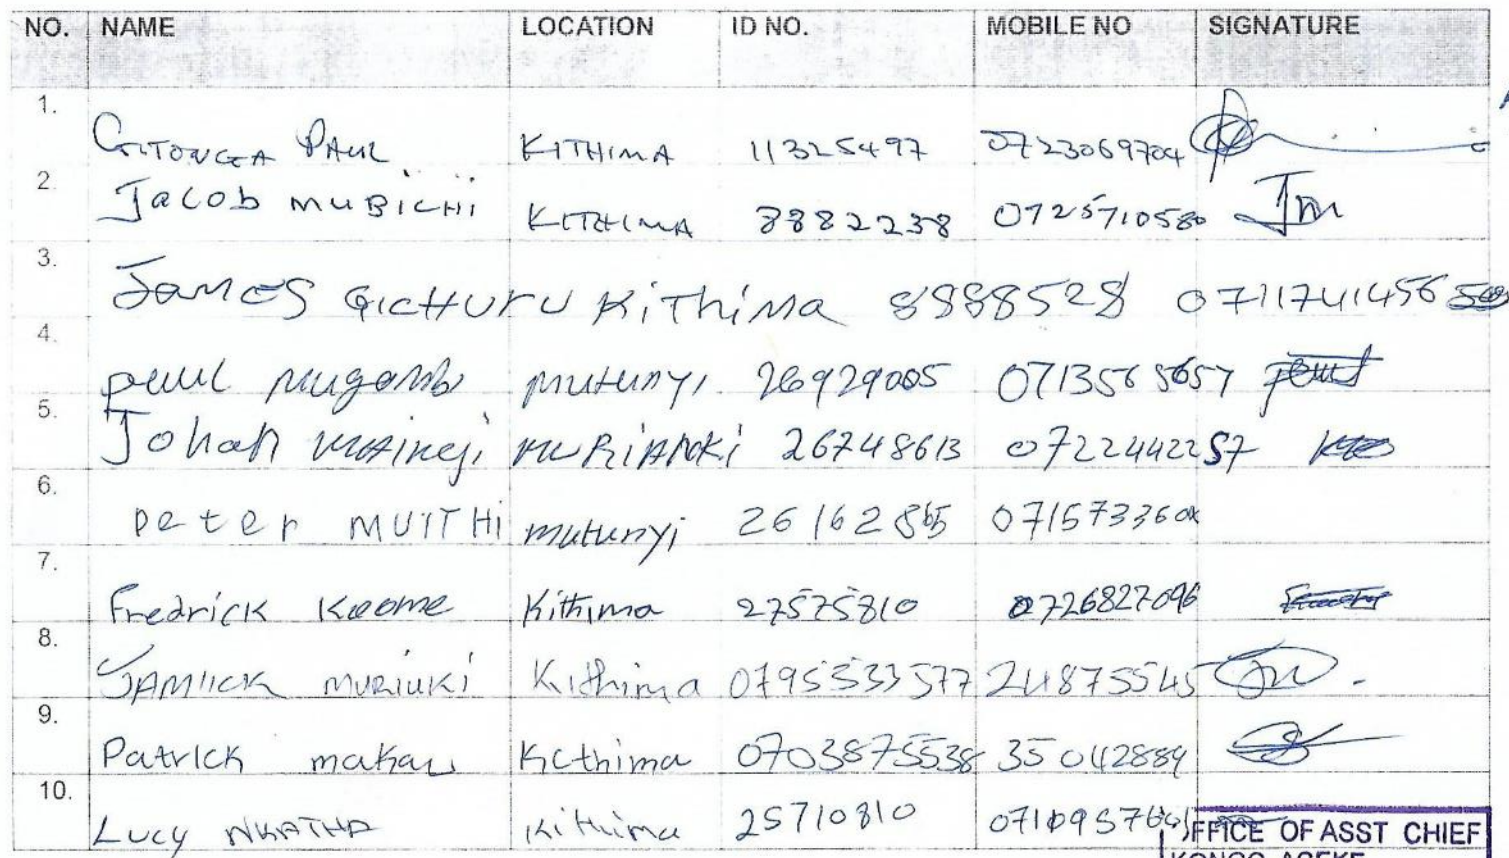 NO. NAME LOCATION ID NO. MOBILE NO SIGNATURE
1. GITONGA PAUL KITHIMA 11325497 0723069704
2. Jacob MUBICHI KITHIMA 8882238 0725710580 Jm
3. James GICHURU KiThiMa 8888528 0711741456
4. paul Mugambi mutunyi 26929005 0713565657
5. Johah 26748613 0722442257
6. Peter MUITHI mutunyi 26162865 071573360
7. Fredrick Koome Kithima 27575810 0726827096
8. JAMIICK MURIUKI Kithima 0795533577 24875545
9. Patrick makau Kithima 0703875538 35042889
10. Lucy NKATHA Kithima 25710810
OFFICE OF ASST CHIEF